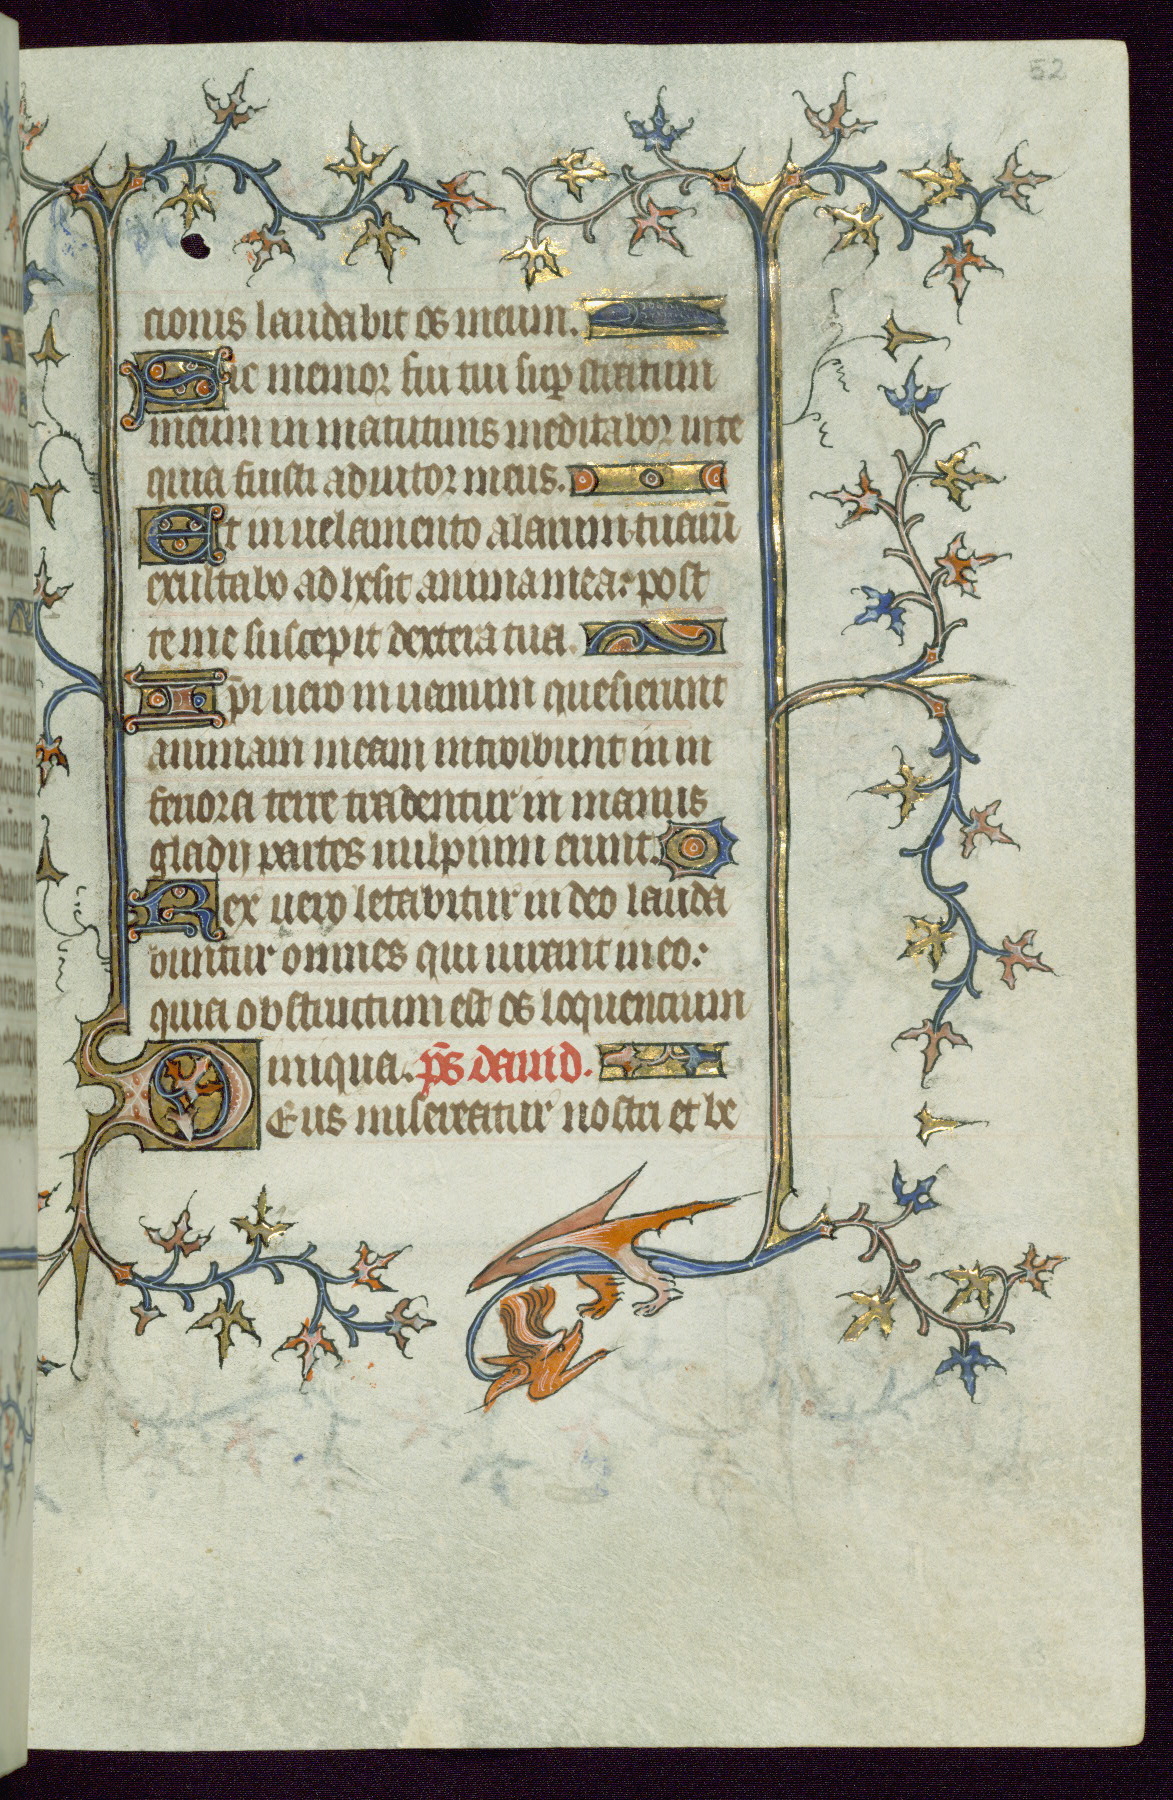 52
cionis laudabit os meum.
Sic memor fui tui sup stratum
meum in matutinis meditabor in te
quia fuisti adiutor meus.
Et in uelamento alarum tuarū
exultabo adhesit anima mea: post
te me suscepit dextera tua.
Ipi uero in uanum quesierunt
animam meam introibunt in in
feriora terre tradentur in manus
gladij partes uulpium erunt.
Rex uero letabitur in deo lauda
buntur omnes qui iurant in eo:
quia obstructum est os loquentium
iniqua. ps dauid.
Deus misereatur nostri et be